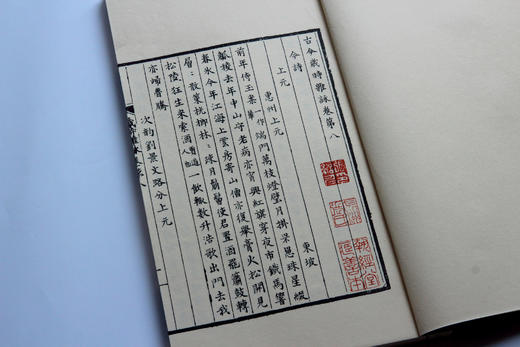 古今歲時雜詠卷第八
今詩
上元
惠州上元 東坡
前年侍玉輦端門萬枝燈璧月掛罘罳珠星綴
觚稜去年中山守老病亦宵興紅旗穿夜市鐵馬響
春冰今年江海上雲房寄山僧亦復舉膏火松間見
層〻散策桄榔林〻踈月鬅鬙使君置酒罷簫鼓轉
松陵狂生來索酒賈道人也一飲輒數升浩歌出門去我
亦歸瞢騰
次韵劉景文路分上元